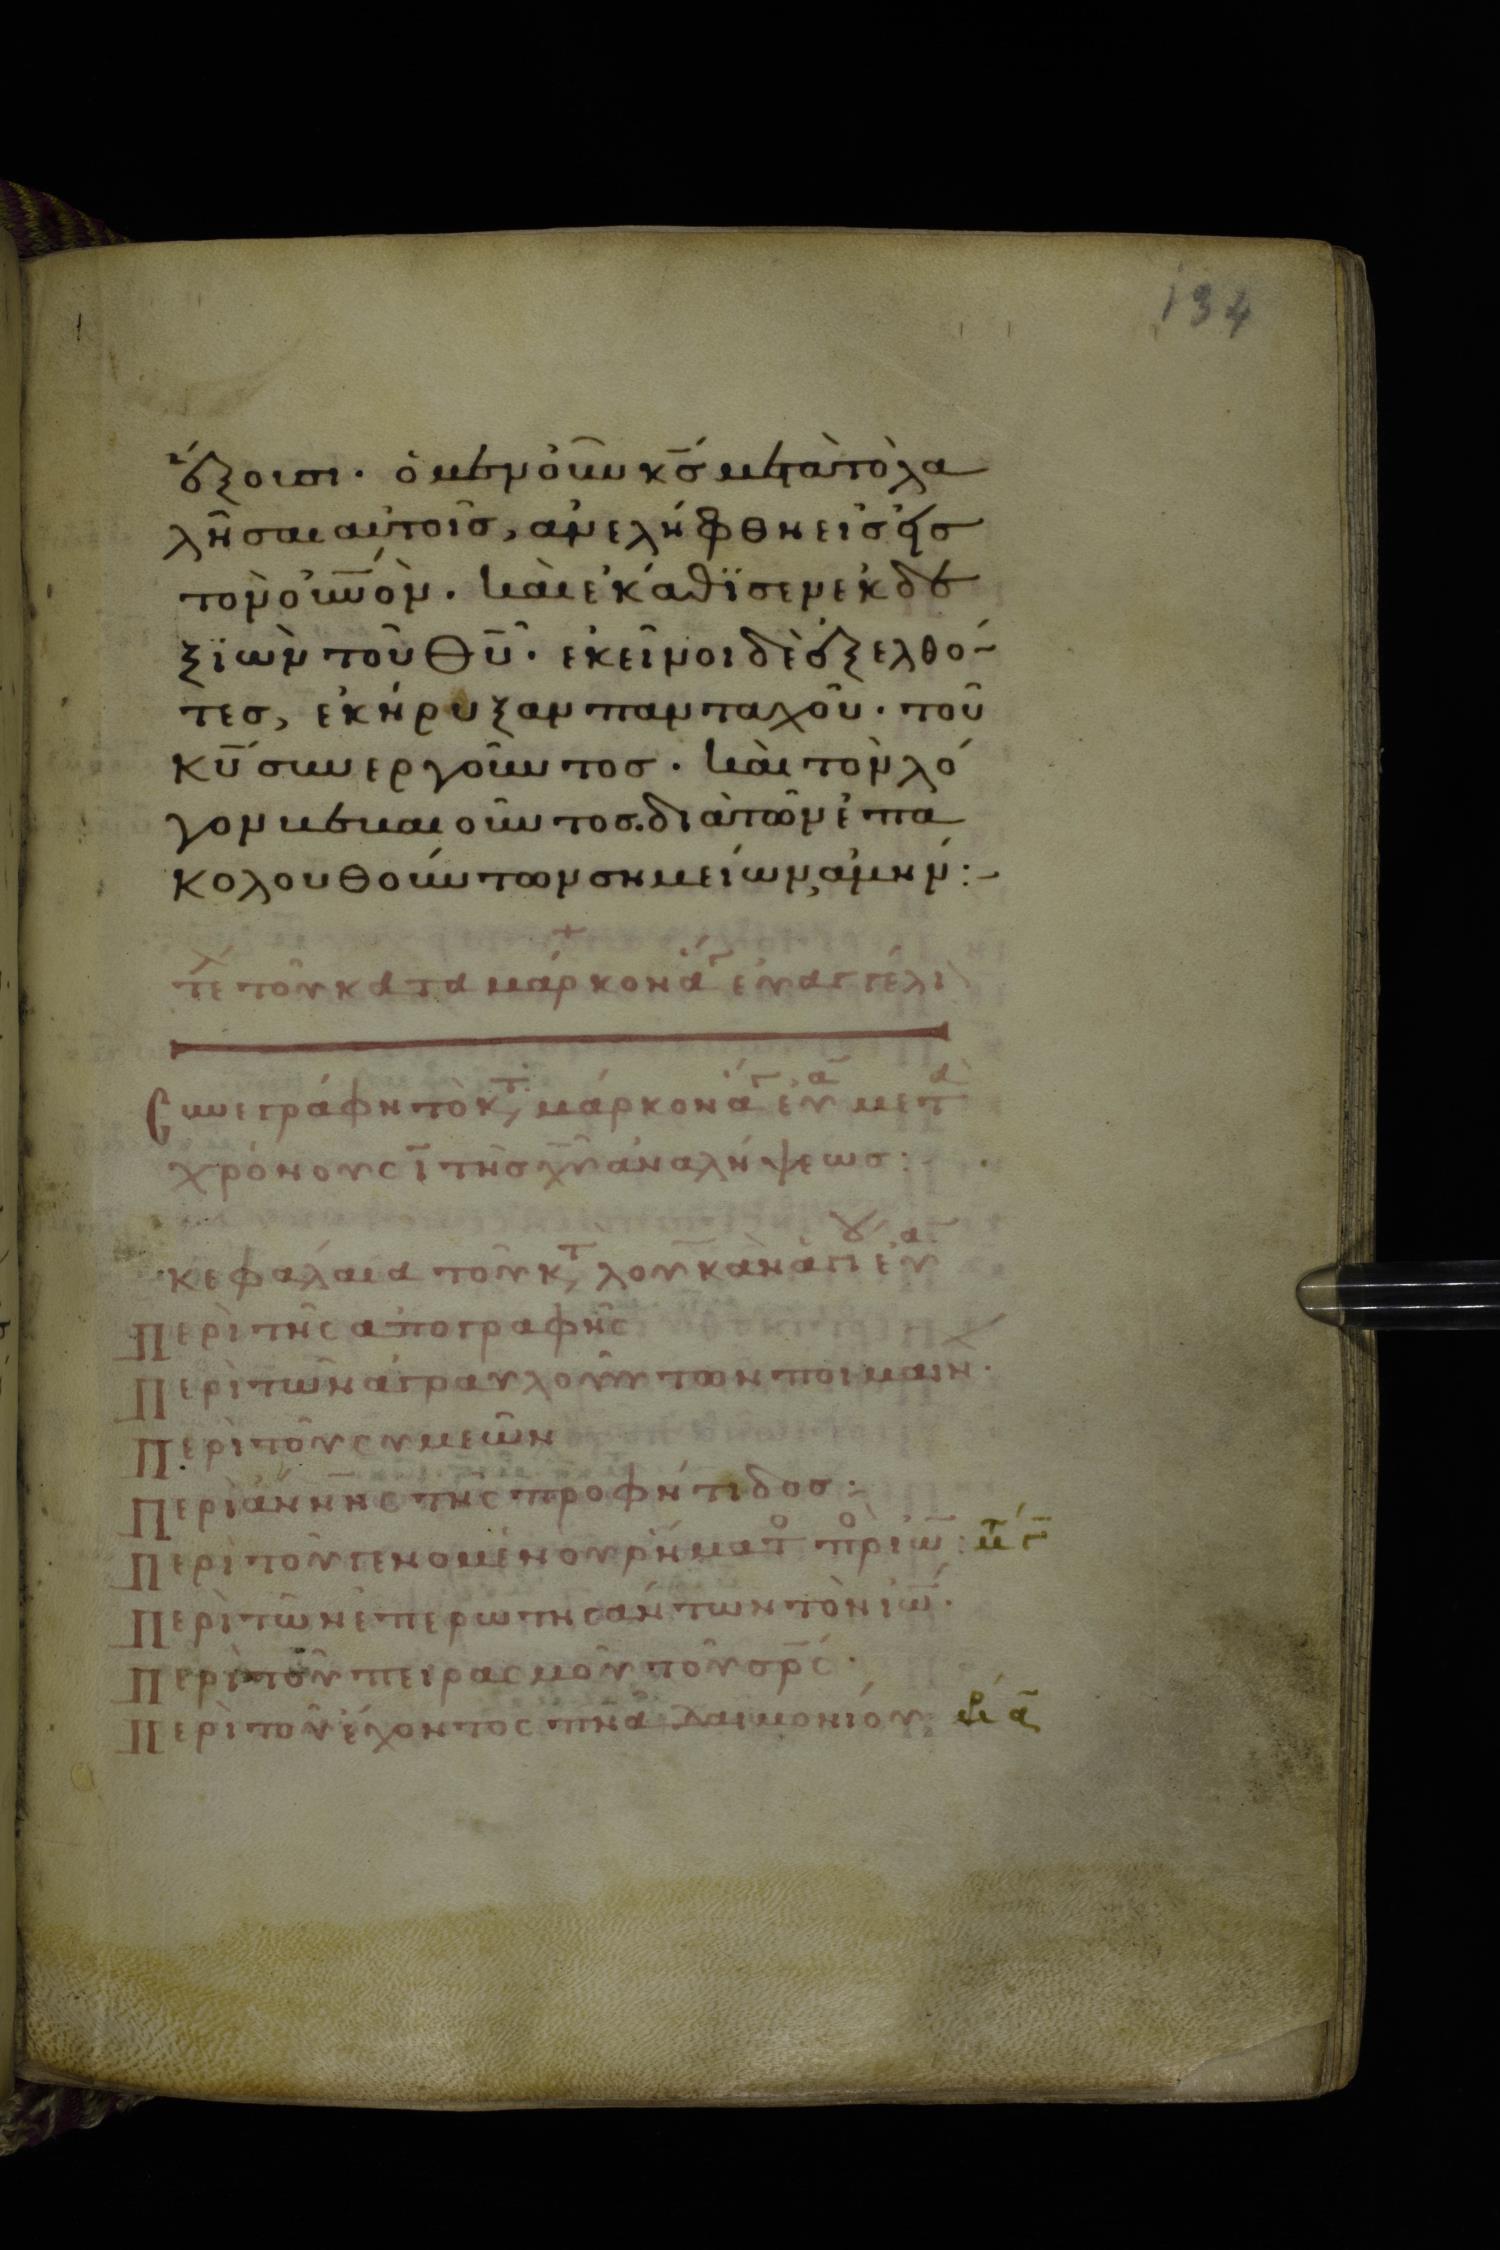 134
ἕξουσι· ὁ μὲν οὖν κ̅ς̅ μετὰ τὸ λα
λῆσαι αὐτοῖς, ἀνελήφθη εἰς
τὸν οὐ̅ν̅όν. καὶ ἐκάθϊσεν ἐκ δε
ξϊῶν τοῦ θ̅υ̅· ἐκεῖνοι δὲ ἐξελθό
τες, ἐκήρυξαν πανταχοῦ· τοῦ
κ̅υ̅ συνεργοῦντος. καὶ τὸν λό
γον βεβαιοῦντος. διὰ τῶν ἐπα
κολουθούντων σημείων, ἀμήν:-
τέ τοῦ κατα μάρκον ἁγ εὐαγγέλι
Συνεγράφη τὸ κτ μάρκον ἅγ εὐα μετα
χρόνους ι̅ τῆς χ̅υ̅ ἀναλήψεως:
κεφάλαια τοῦ κτ λουκᾶν ἁγι εὐα
Περὶ τῆς απογραφῆς
Περὶ τῶν ἀγραυλούντων ποιμαιν·
Περὶ τοῦ συμεῶν
Περὶ ἄννης τῆς προφήτιδος:
Περὶ τοῦ γενομένου ρήματο πορ ἰω̅:
Περὶ τῶν ἐπερωτησάντων τὸν ἰω̅·
Περὶ τοῦ πειρασμοῦ τοῦ σ̅ρ̅ς̅·
Περὶ τοῦ ἔχοντος π̅ν̅α̅ δαιμονίου